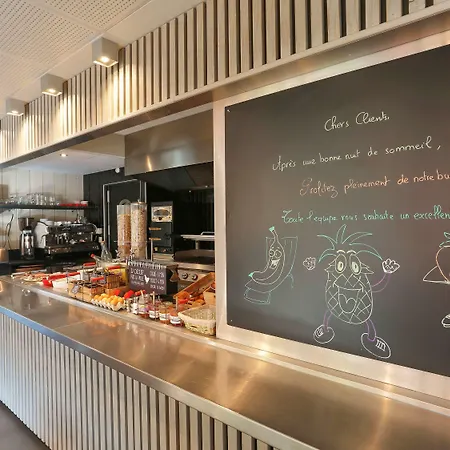 Chers Clients,
Après une bonne nuit de sommeil,
Profitez pleinement de notre bu
Toute l'équipe vous souhaite un excellen